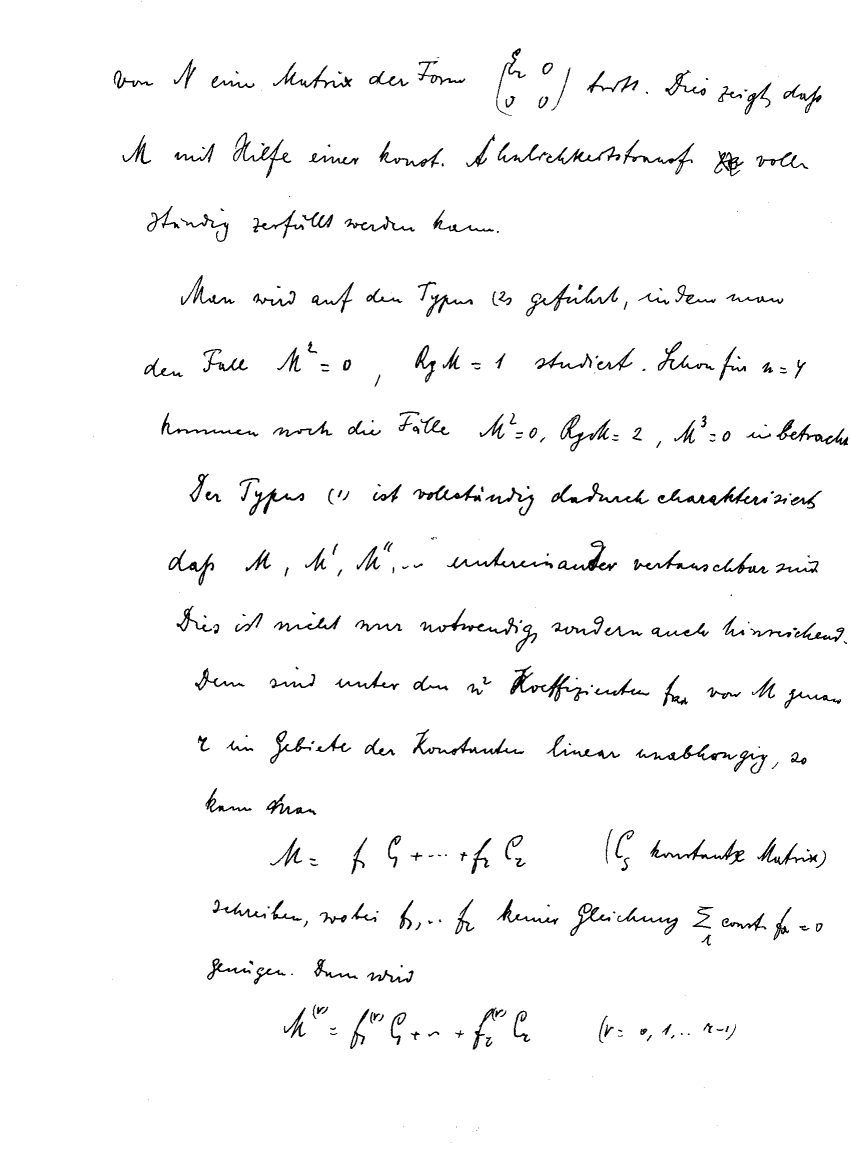 von N eine Matrix der Form (E_r 0 / 0 0) tritt. Dies zeigt, daß
M mit Hilfe einer konst. Ähnlichkeitstransf. voll-
ständig zerfällt werden kann.
Man wird auf den Typus (2) geführt, indem man
den Fall M² = 0 , Rg M = 1 studiert. Schon für n = 4
kommen noch die Fälle M² = 0, Rg M = 2 , M³ = 0 in betracht
Der Typus (1) ist vollständig dadurch charakterisiert,
daß M, M', M'', .. untereinander vertauschbar sind
Dies ist nicht nur notwendig, sondern auch hinreichend.
Denn sind unter den n² Koeffizienten f_{ik} von M genau
r im Gebiete der Konstanten linear unabhängig, so
kann man
M = f₁ C₁ + ··· + f_r C_r (C_s konstante Matrix)
schreiben, wobei f₁, .. f_r keiner Gleichung Σ₁ const. f_s = 0
genügen. Dann wird
M^{(ν)} = f₁^{(ν)} C₁ + ·· + f_r^{(ν)} C_r (ν = 0, 1, .. r-1)